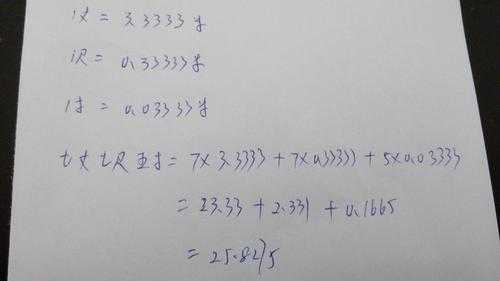 1丈 = 3.3333米
1尺 = 0.33333米
1寸 = 0.03333米
七丈七尺五寸 = 7×3.3333 + 7×0.33333 + 5×0.03333
= 23.33 + 2.331 + 0.1665
= 25.8275